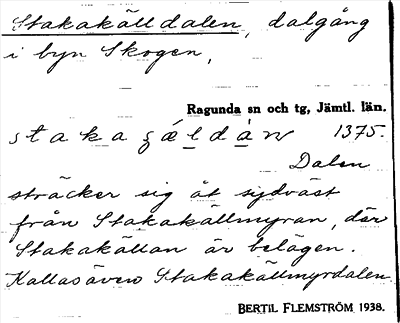 Stakakälldalen, dalgång
i byn Skogen,
Ragunda sn och tg, Jämtl. län.
1375.
Dalen
sträcker sig åt sydväst
från Stakakällmyran, där
Stakakällan är belägen.
Kallas även Stakakällmyrdalen
BERTIL FLEMSTRÖM 1938.